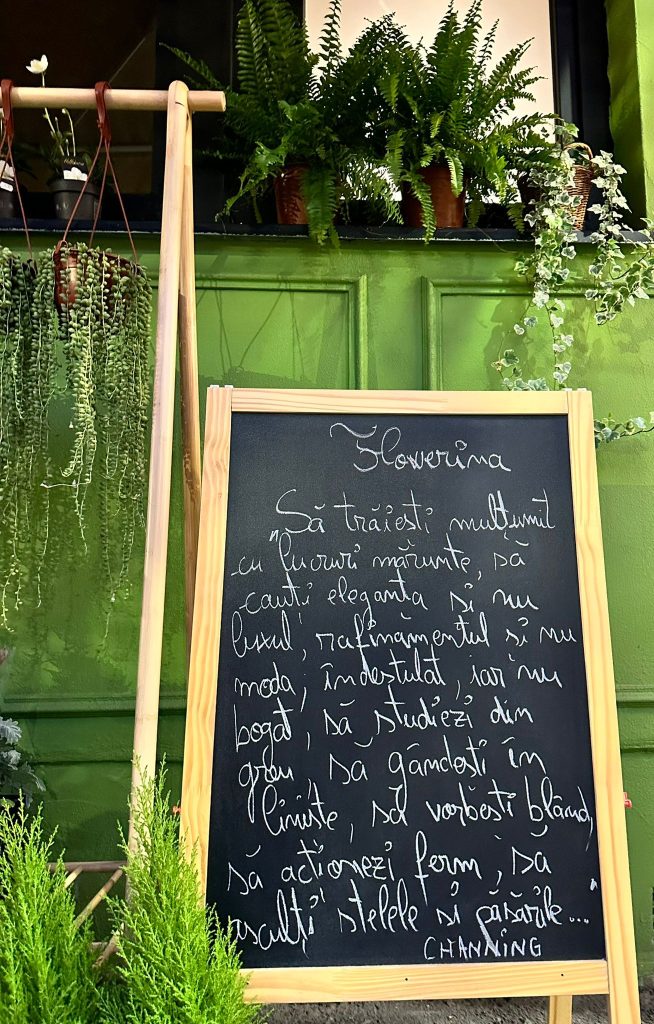 Flowerina
„Să trăiești mulțumit
cu lucruri mărunte, să
cauți eleganța și nu
luxul, rafinamentul și nu
moda, îndestulat, iar nu
bogat, să studiezi din
greu, să gândești în
liniște, să vorbești blând,
să acționezi ferm, să
asculți stelele și păsările..."
CHANNING